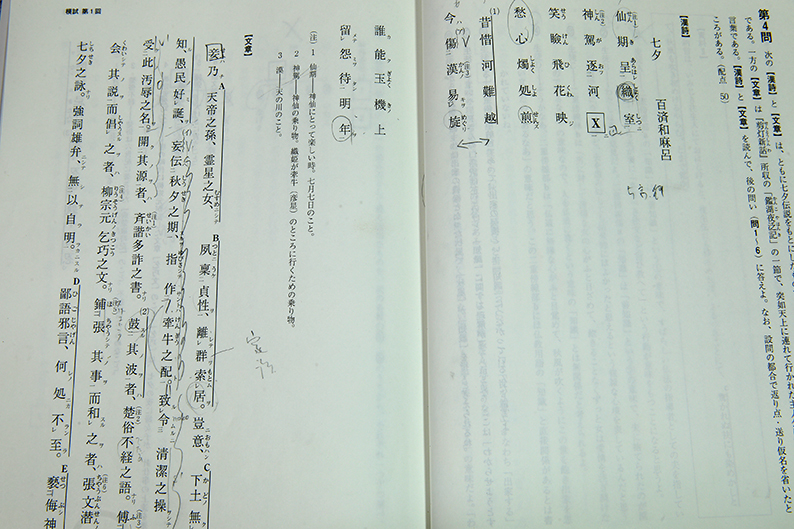 第4問 次の【漢詩】と【文章】は、ともに七夕伝説をもとにしたもの
である。一方の【文章】は『剪灯新話』所収の「鑑湖夜泛記」の一節で、突如天上に連れて行かれた主人
言葉である。【漢詩】と【文章】を読んで、後の問い(問1~6)に答えよ。なお、設問の都合で返り点・送り仮名を省いたと
ころがある。(配点 50)
【漢詩】
七夕 百済和麻呂
仙期呈織室
神駕逐河X
笑瞼飛花映
愁心燭処煎
(1)昔惜河難越
今傷漢易旋
誰能玉機上
留怨待明年
(注) 1 仙期――神仙にとって楽しい時。七月七日のこと。
2 神駕――神仙の乗り物。織姫が牽牛(彦星)のところに行くための乗り物。
3 漢――天の川のこと。
【文章】
妾乃A天帝之孫、霊星之女、B夙稟貞性、離群索居。豈意、C下土無
知、愚民好誕、妄伝秋夕之期、指作牽牛之配。致令清潔之操
受此汚辱之名。開其源者、斉諧多詐之書。(2)鼓其波者、楚俗不経之語。傅
会其説而倡之者、柳宗元乞巧之文。鋪張其事而和之者、張文潜
七夕之詠。強詞雄弁、無以自明。D鄙語邪言、何処不至。E褻侮神
模試 第1回